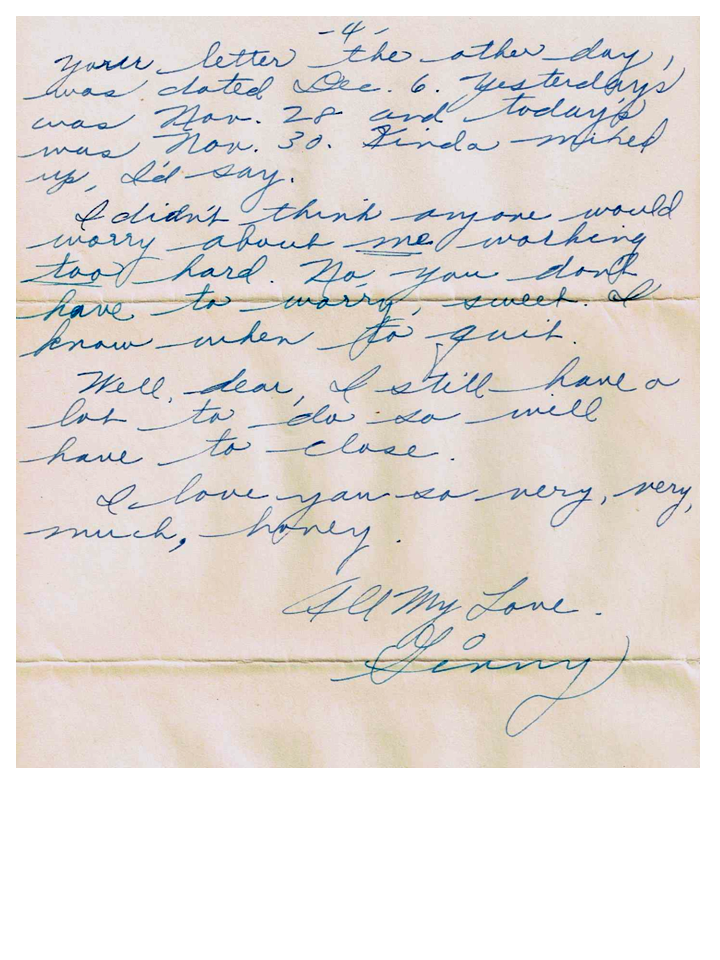 -4-
your letter the other day,
was dated Dec. 6. Yesterdays
was Nov. 28 and today's
was Nov. 30. Kinda mixed
up, I'd say.
I didn't think anyone would
worry about me working
too hard. No, you don't
have to worry, sweet. I
know when to quit.
Well, dear, I still have a
lot to do so will
have to close.
I love you so very, very,
much, honey.
All My Love.
Ginny